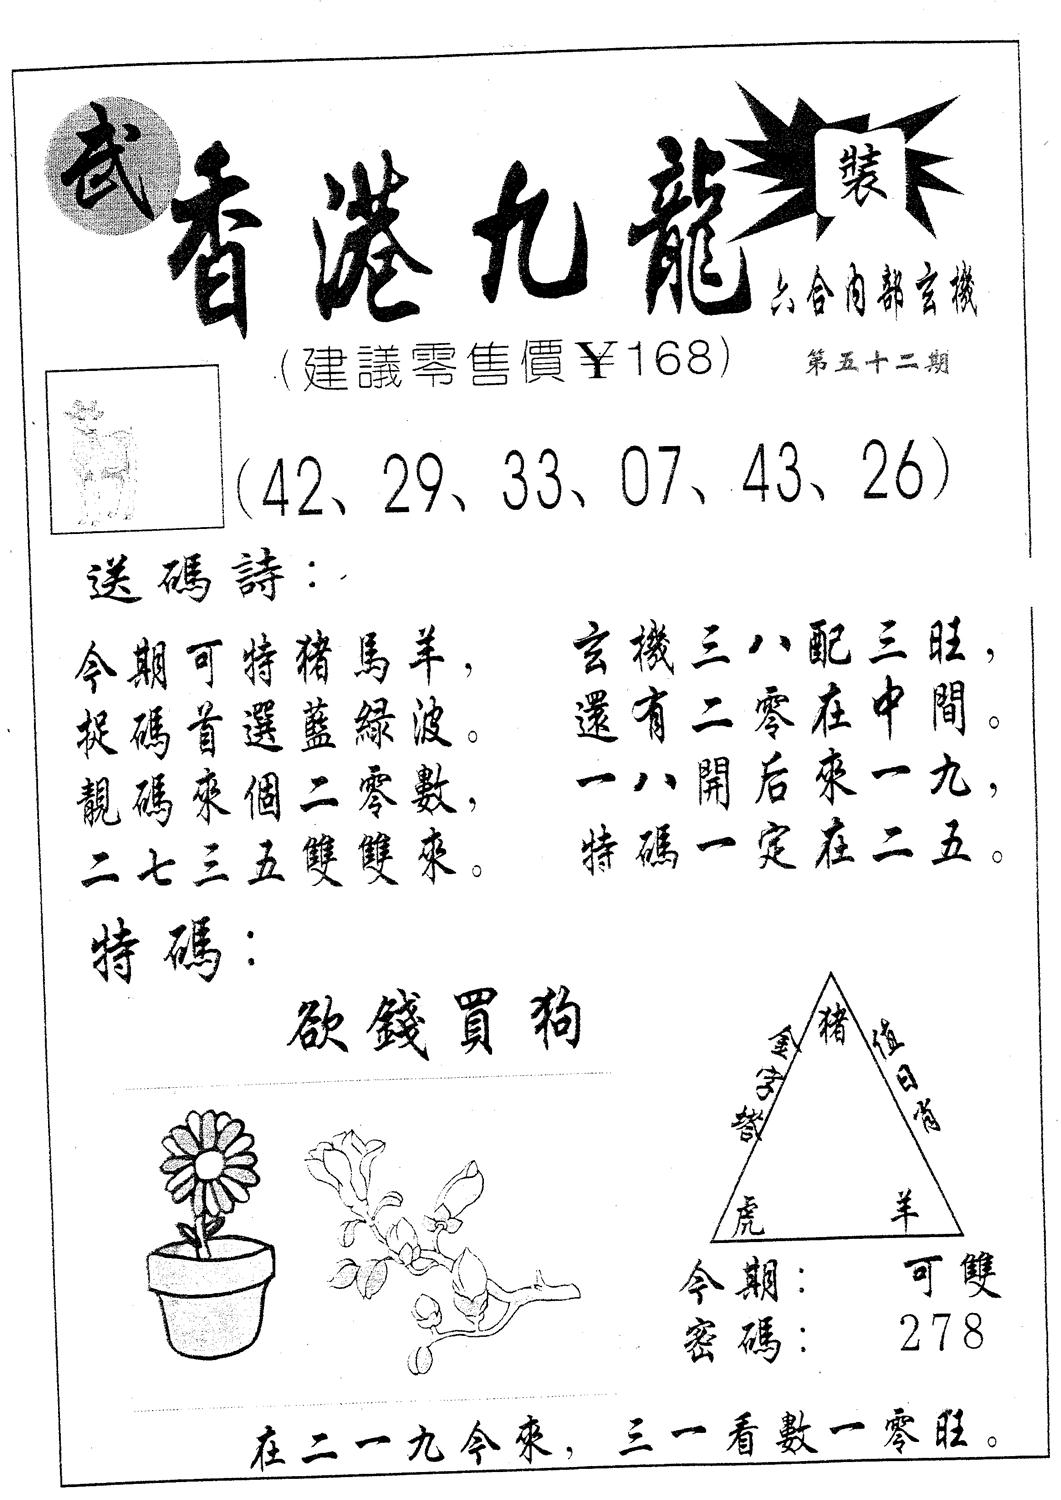 武
香港九龍
裝
六合内部玄機
(建議零售價¥168)
第五十二期
(42、29、33、07、43、26)
送碼詩：
今期可特猪馬羊，
捉碼首選藍綠波。
靚碼來個二零數，
二七三五雙雙來。
玄機三八配三旺，
還有二零在中間。
一八開后來一九，
特碼一定在二五。
特碼：
欲錢買狗
猪
金字
值日肖
虎
羊
今期：可雙
密碼：278
在二一九今來，三一看數一零旺。